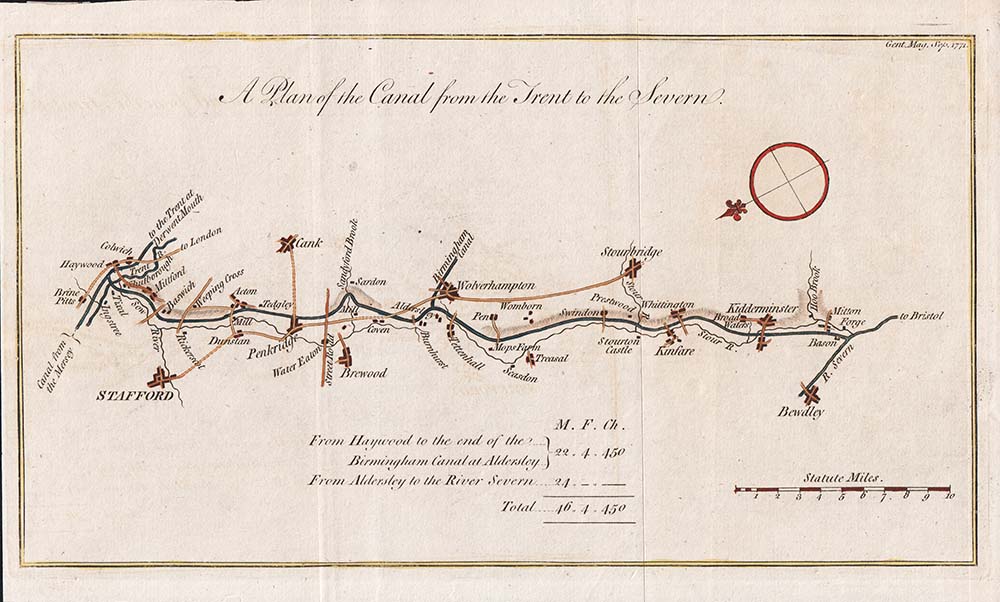 Gent. Mag. Sep. 1771.
A Plan of the Canal from the Trent to the Severn.
to the Trent at
Derwent Mouth
to London
Colwich
Haywood
Trent R.
Shutborough
Brine
Pitts
Tixal
Ingstree
Sow
River
Milford
Baswich
Weeping Cross
Canal from
the Mersey
STAFFORD
Acton
Tedgley
Mill
Dunstan
Cank
Penkridge
Water Eaton
Street Road
Sandyford Brook
Sardon
Mill
Coven
Brewood
Birmingham
Canal
Wolverhampton
Aldersly
Tettenhall
Pen
Womborn
Mops Farm
Treasal
Seasdon
Stourbridge
Stour R.
Prestwood
Swindon
Whittington
Stourton
Castle
Kinfare
Stour R.
Kidderminster
Broad
Waters
Mitton
Forge
Bason
to Bristol
R. Severn
Bewdley
M. F. Ch.
From Haywood to the end of the
Birmingham Canal at Aldersley
22 . 4 . 450
From Aldersley to the River Severn 24 . — —
Total 46 . 4 . 450
Statute Miles.
1 2 3 4 5 6 7 8 9 10